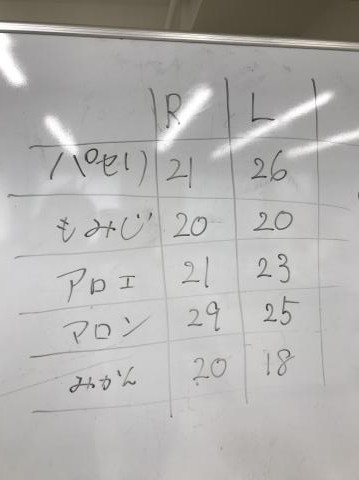 R L
パセリ 21 26
もみじ 20 20
アロエ 21 23
マロン 29 25
みかん 20 18